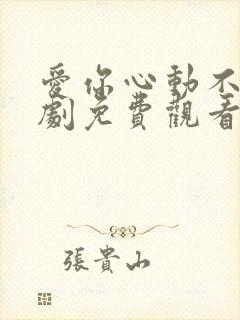 愛你心動不
劇免費觀看
張貴山